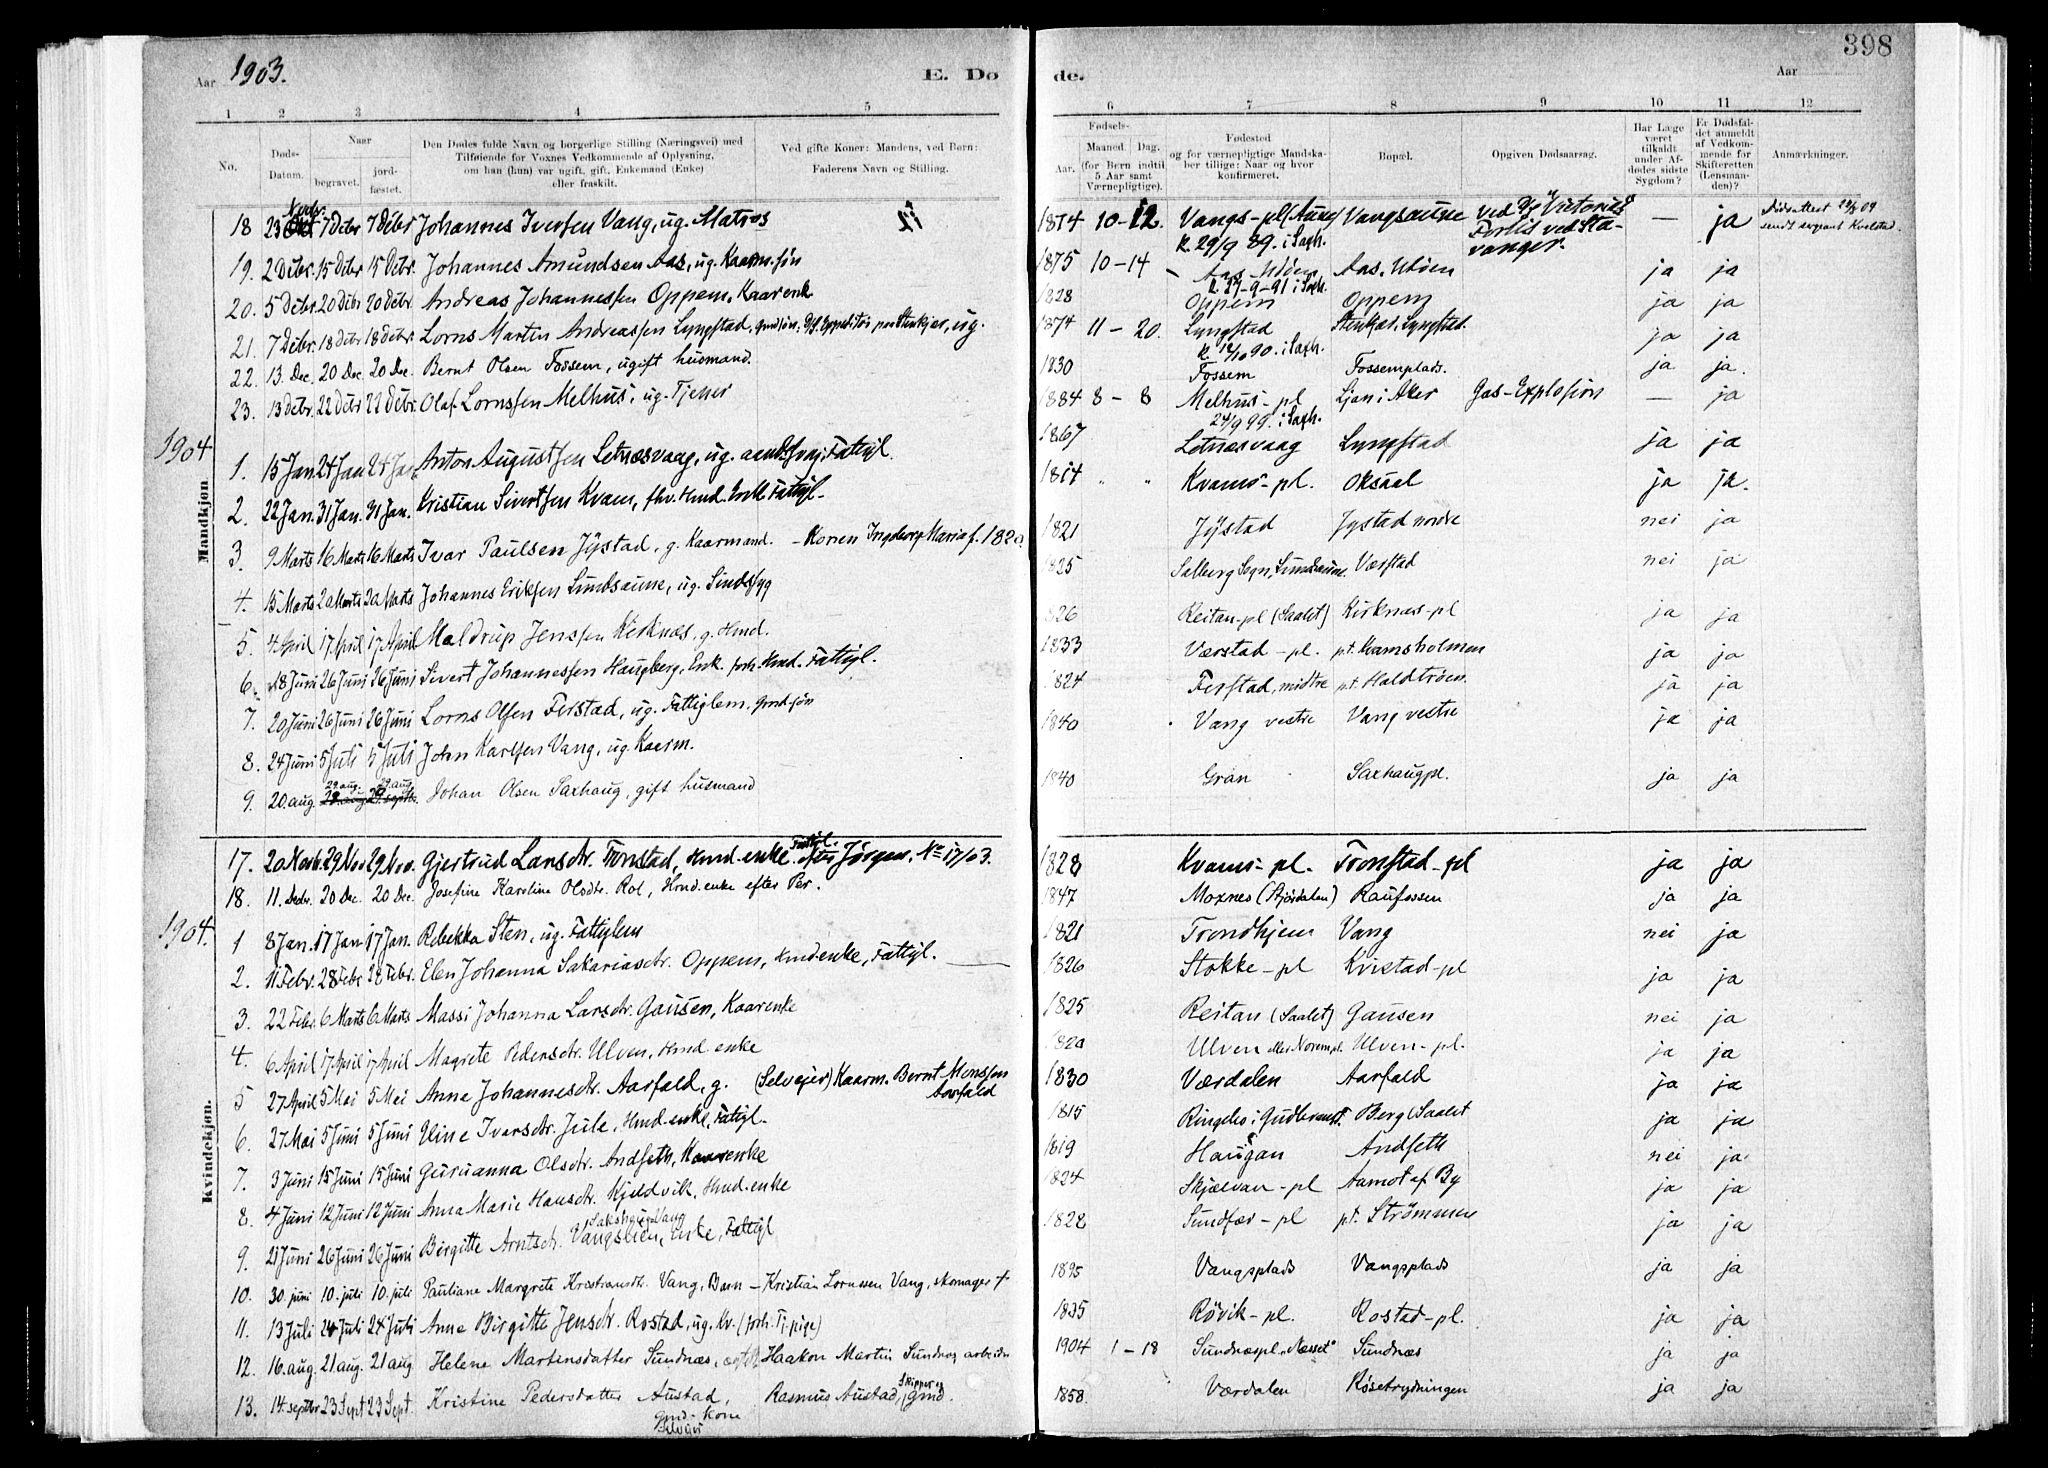 398
Aar 1903.
E. Dø
de.
Aar
1 2 3 4 5 6 7 8 9 10 11 12
No.
Døds-Datum.
Naar
begravet.
jord-fæstet.
Den Dødes fulde Navn og borgerlige Stilling (Næringsvei) med
Tilføiende for Voxnes Vedkommende af Oplysning,
om han (hun) var ugift, gift, Enkemand (Enke)
eller fraskilt.
Ved gifte Koner: Mandens, ved Børn:
Faderens Navn og Stilling.
Fødsels-
Aar. Maaned. Dag.
(for Børn indtil
5 Aar samt
Værnepligtige).
Fødested
og for værnepligtige Mandska-
ber tillige: Naar og hvor
konfirmeret.
Bopæl.
Opgiven Dødsaarsag.
Har Læge
været
tilkaldt
under Af-
dødes sidste
Sygdom?
Er Dødsfal-
det anmeldt
af Vedkom-
mende for
Skifteretten
(Lensman-
den)?
Anmærkninger.
Mandkjøn
18 23 Novbr. 7 Debr 7 Debr Johannes Iversen Vang, ug. Matros 1874 10-12. Vangs-pl (Aune) Vangsaune ved D/S Victorias Forlis ved Sta-vanger. — ja
K. 29/9 89. i Saxh.
19. 2 Debr. 15 Debr 15 Debr. Johannes Amundsen Aas, ug. Kaarm. søn 1875 10-14 Aas, Utöen ja ja
K. 27-9-91 i Saxh.
20. 5 Debr. 20 Debr 20 Debr. Andreas Johannessen Oppem, Kaarenk. 1828 Oppem Oppem ja ja
21. 7 Debr. 18 Debr 18 Debr. Lorns Martin Andreassen Lyngstad, ug. 1874 11-20. Lyngstad Stenkjær, Lyngstad. ja ja
K. 12/10 90. i Saxh.
22. 13. Dec. 20 Dec 20 Dec. Bernt Olsen Fossem, ugift husmand. 1830 Fossem Fossemplads. ja ja.
23. 13 Debr. 22 Debr 22 Debr. Olaf Lornssen Melhus, ug. Tjener 1884 8-8 Melhus-pl Ljan i Aker Gas-Explosion — ja
24/9 99. i Saxh.
1904
1. 15 Jan. 24 Jan 24 Jan Anton Augustsen Letnæsvaag, ug. Fattigl. 1867 Letnæsvaag Lyngstad ja ja
2. 22 Jan. 31 Jan. 31 Jan. Kristian Sivertsen Kvam, fhv. Hmd. Enkm. Fattigl. 1814 " " Kvams-pl. Oksaal ja ja.
3. 9 Marts 16 Marts 16 Marts Ivar Paulsen Jÿstad, g. Kaarmand. - Konen Ingeborg Maria f. 1820 1821 Jÿstad Jystad nordre nei ja
4. 15 Marts 20 Marts 20 Marts Johannes Eriksen Lundsaune, ug. Sindssyg 1825 Salberg Sogn, Lundsaune. Værstad nei ja
5. 4 April 17 April 17 April Maldrup Jenssen Kirknæs, g. Hmd. 1826 Reitan-pl (Saalet) Kirknæs-pl ja ja
6. 18 Juni 26 Juni 26 Juni Sivert Johannessen Haugberg, Enk. forh. Hmd. Fattigl. 1833 Værstad-pl. pt. Kvamsholmen ja ja
7. 20 Juni 26 Juni 26 Juni Lorns Olsen Ferstad, ug. Fattiglem. Gmd. søn 1824 Ferstad, midtre pt. Haldtröen ja ja
8. 24 Juni 5 Juli 5 Juli John Karlsen Vang, ug. Kaarm. 1840 Vang vestre Vang vestre ja ja
9. 20. aug. 29. aug. 29 aug. Johan Olsen Saxhaug, gift husmand 1840 Gran Saxhaugpl. ja ja
Kvindekjøn.
17. 20 Novb. 29 Nov 29 Nov. Gjertrud Larsdtr. Tronstad, Hmd-enke Fattigl. efter Jørgen. No 17/03. 1828 Kvams-pl. Tronstad-pl ja ja
18. 11. Decbr. 20 Dec. 20 Dec. Josefine Karoline Olsdtr. Rol, Hmd. enke efter Per. 1847 Moxnes (Stjørdalen) Raufossen ja ja
1904.
1 8 Jan. 17 Jan 17 Jan. Rebekka Sten, ug. Fattiglem 1821 Trondhjem Vang nei ja
2. 11 Febr. 28 Febr 28 Febr. Elen Johanna Sakariasdtr. Oppem, Hmd-enke, Fattigl. 1826 Stokke-pl Kvistad-pl ja ja
3. 22 Febr. 6 Marts 6 Marts Massi Johanna Larsdtr. Gausen, Kaarenke 1825 Reitan (Saalet) Gausen nei ja
4. 6 April 17 April 17 April Magrete Pedersdtr. Ulven, Hmd. enke 1820 Ulven eller Norempl. Ulven-pl. ja ja
5 27 April 5 Mai 5 Mai Anne Johannesdtr. Aarfald, g. (Selveier) Kaarm. Bernt Monssen Aarfald 1830 Værdalen Aarfald ja ja
6. 27 Mai 5 Juni 5 Juni Eline Iversdtr. Jule, Hmd-enke, Fattigl. 1815 Ringebo i Gudbrandsd. Berg (Saalet ja ja
7. 3 Juni 15 Juni 15 Juni Guruanna Olsdtr. Andseth, Kaarenke 1819 Haugan Andseth nei ja
8. 4 Juni 12 Juni 12 Juni Anna Marie Hansdtr. Kjeldvik, Hmd-enke 1824 Skjælvan-pl Aamot af By ja ja
9. 21 Juni 26 Juni 26 Juni Birgitte Arntsdtr. Vangslien, Enke, Fattigl 1828 Sundfær-pl pt. Strömmen ja ja
10. 30. juni 10. juli 10. juli Pauliane Margrete Kristiansdtr. Vang, Barn - Kristian Lornssen Vang, skomager 1895 Vangsplads Vangsplads ja ja
11. 13 Juli 24 Juli 24 Juli Anne Birgitte Jensdtr. Rostad, ug. Kv. (forh. Tj. pige) 1835 Rövik-pl. Rostad-pl. ja ja
12. 16. aug. 21 aug. 21 aug Helene Martensdatter Sundnæs, Haakon Martin Sundnæs arbeider 1904 1-18 Sundnæspl. "Næsset" Sundnæs ja ja
13. 14. septbr 23 Sept 23 Sept. Kristine Pedersdatter Austad, Gmd-Kone Selveier Rasmus Austad, Skipper og gmd. 1858. Værdalen Kösetrydningen ja ja